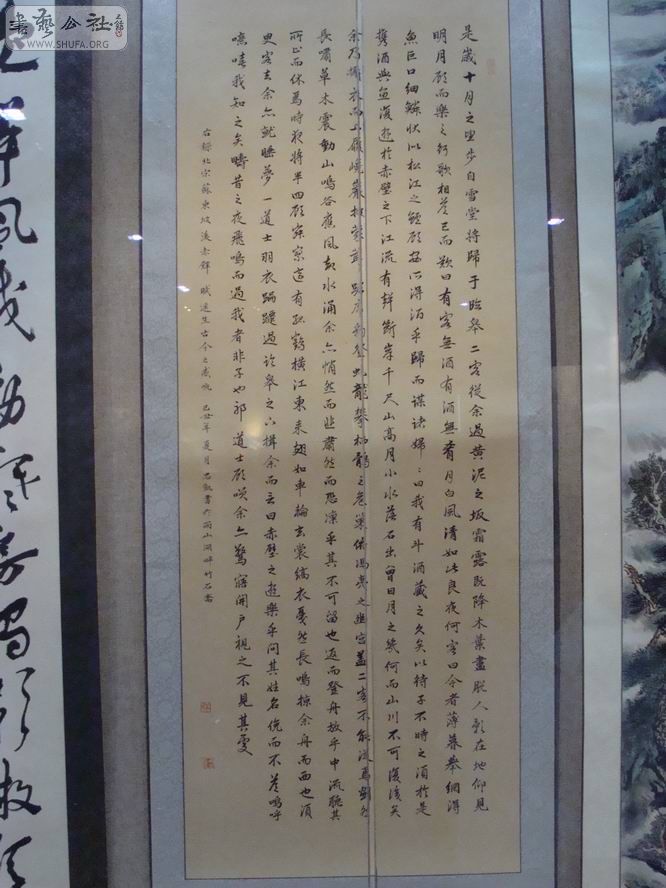 書藝公社
WWW.SHUFA.ORG
是歲十月之望步自雪堂將歸于臨皋二客從余過黃泥之坂霜露既降木葉盡脫人影在地仰見
明月顧而樂之行歌相答已而歎曰有客無酒有酒無肴月白風清如此良夜何客曰今者薄暮舉網得
魚巨口細鱗狀似松江之鱸顧安所得酒乎歸而謀諸婦婦曰我有斗酒藏之久矣以待子不時之須於是
攜酒與魚復遊於赤壁之下江流有聲斷岸千尺山高月小水落石出曾日月之幾何而山川不可復識矣
余乃攝衣而上履巉巖披蒙茸踞虎豹登虬龍攀栖鶻之危巢俯馮夷之幽宮蓋二客不能從焉劃然
長嘯草木震動山鳴谷應風起水涌余亦悄然而悲肅然而恐凜乎其不可留也返而登舟放乎中流聽其
所止而休焉時夜將半四顧寂寥適有孤鶴橫江東來翅如車輪玄裳縞衣戛然長鳴掠余舟而西也須
臾客去余亦就睡夢一道士羽衣蹁躚過臨皋之下揖余而言曰赤壁之遊樂乎問其姓名俛而不答嗚呼
噫嘻我知之矣疇昔之夜飛鳴而過我者非子也邪道士顧笑余亦驚寤開戶視之不見其處
右錄北宋蘇東坡後赤壁賦 己丑年夏月